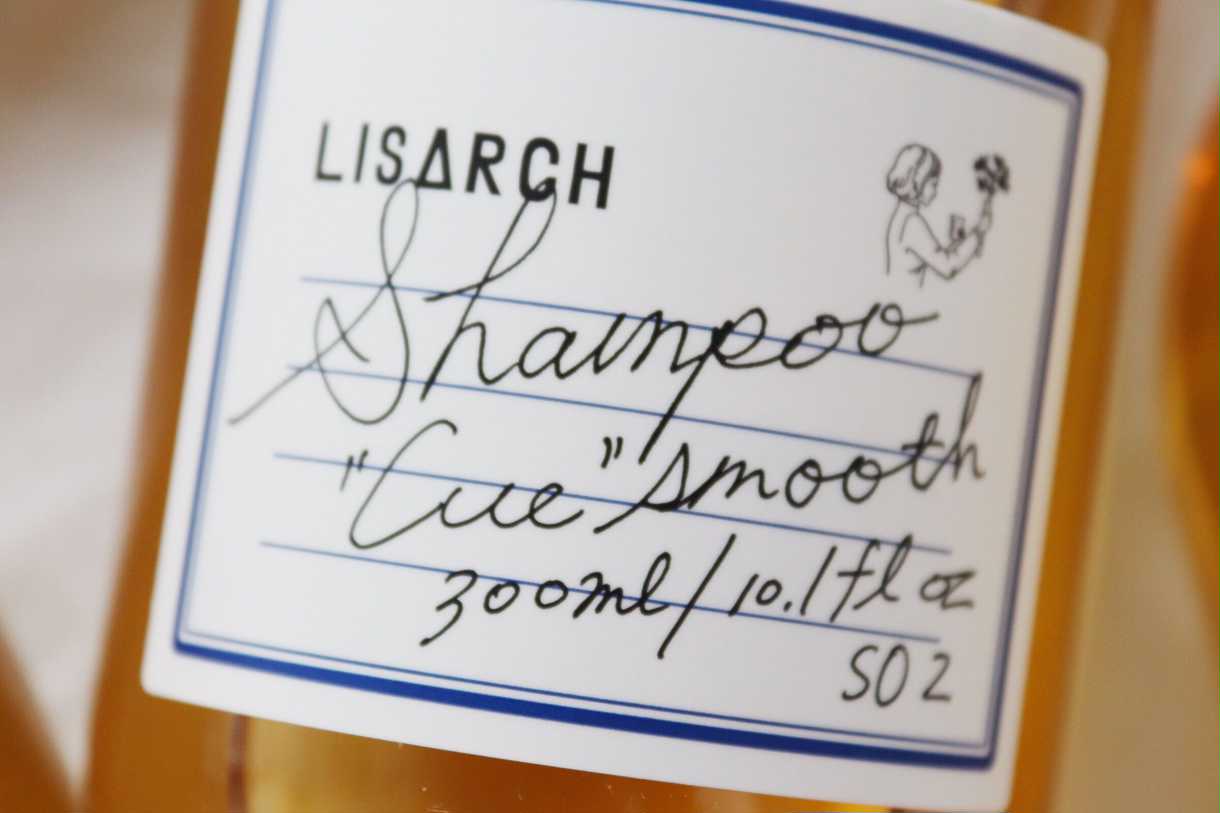 LISARCH
Shampoo
"Cue" smooth
300ml/10.1fl oz
S02